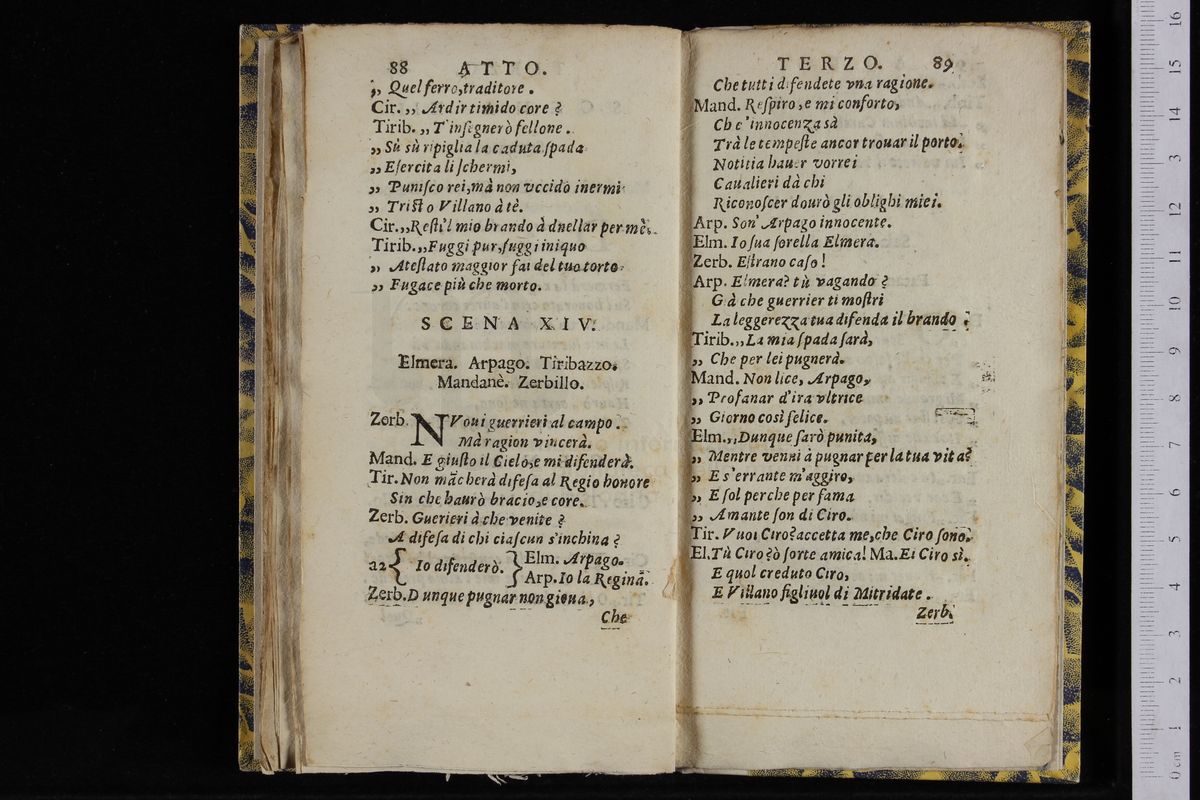 88 ATTO.
„ Quel ferro, traditore.
Cir. „ Ardir timido core ?
Tirib. „ T'inſegnerò fellone.
„ Sù sù ripiglia la caduta ſpada
„ Eſercita li ſchermi,
„ Puniſco rei, mà non vccido inermi
„ Triſto Villano à tè.
Cir. „ Reſti'l mio brando à duellar per mè.
Tirib. „ Fuggi pur, fuggi iniquo
„ Ateſtato maggior fai del tuo torto
„ Fugace più che morto.
SCENA XIV.
Elmera. Arpago. Tiribazzo.
Mandanè. Zerbillo.
Zerb. NVoui guerrieri al campo.
Mà ragion vincerà.
Mand. E giuſto il Cielo, e mi difenderà.
Tir. Non mãcherà difeſa al Regio honore
Sin che haurò bracio, e core.
Zerb. Guerieri à che venite ?
A difeſa di chi ciaſcun s'inchina ?
a2 { Io difenderò. } Elm. Arpago.
Arp. Io la Regina.
Zerb. Dunque pugnar non gioua,
Che
TERZO. 89
Che tutti difendete vna ragione.
Mand. Reſpiro, e mi conforto,
Ch e'innocenza sà
Trà le tempeſte ancor trouar il porto.
Notitia hauer vorrei
Caualieri dà chi
Riconoſcer dourò gli oblighi miei.
Arp. Son' Arpago innocente.
Elm. Io ſua ſorella Elmera.
Zerb. Eſtrano caſo !
Arp. Elmera? tù vagando ?
Già che guerrier ti moſtri
La leggerezza tua difenda il brando ?
Tirib. „ La mia ſpada ſarà,
„ Che per lei pugnerà.
Mand. Non lice, Arpago,
„ Profanar d'ira vltrice
„ Giorno così felice.
Elm. „ Dunque ſarò punita,
„ Mentre venni à pugnar per la tua vita?
„ E s'errante m'aggiro,
„ E ſol perche per fama
„ Amante ſon di Ciro.
Tir. Vuoi Ciro? accetta me, che Ciro ſono.
El. Tù Ciro? ò ſorte amica! Ma. Ei Ciro sì.
E quol creduto Ciro,
E Villano figliuol di Mitridate.
Zerb.